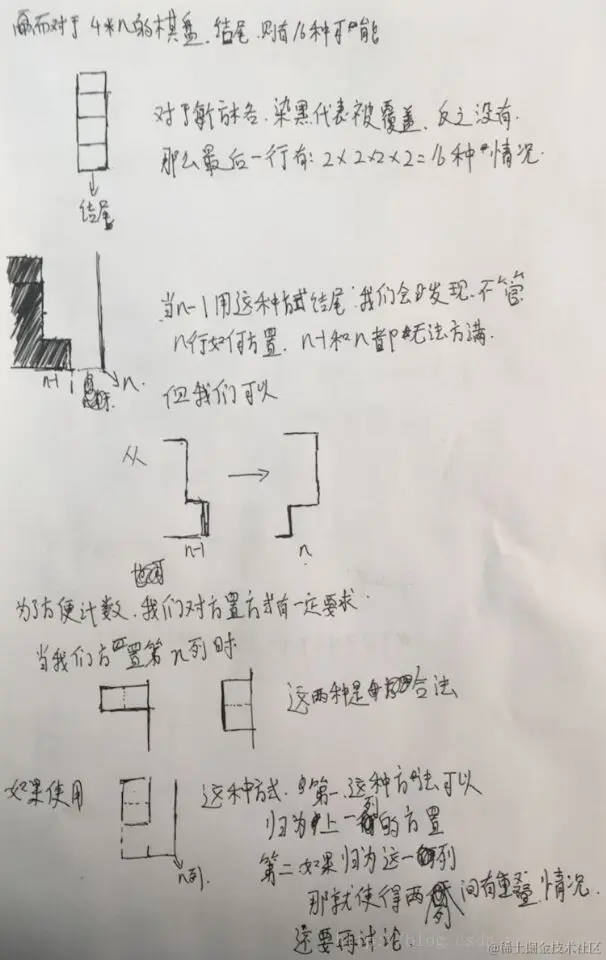 而对于4*n的棋盘.结尾.则有16种可能
对于每方格.染黑代表被覆盖.反之没有.
那么最后一行有:2×2×2×2=16种情况.
结尾
当n-1用这种方式结尾.我们会发现.不管
n行如何方置.n-1和n都无法方满.
n-1
n.
但我们可以
从
n-1
n
为了方便计数.我们对方置方式有一定要求.
当我们方置第n列时
这两种是合法
如果使用
这种方式.第一.这种方法可以
归为上一列的方置
n列.
第二如果归为这一列
那就使得两列间有重叠情况.
这要再讨论.
blog.csdn
@稀土掘金技术社区